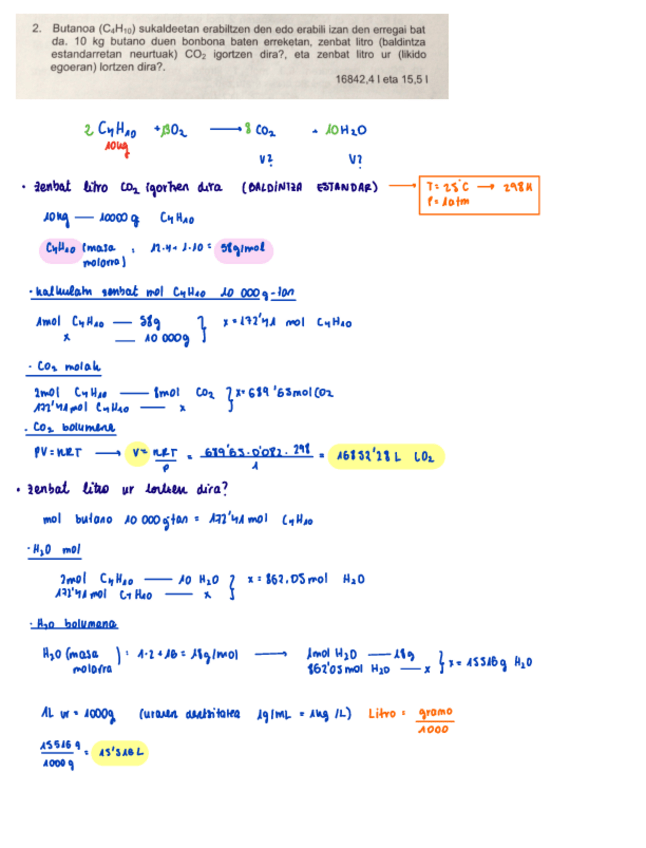 2. Butanoa (C₄H₁₀) sukaldeetan erabiltzen den edo erabili izan den erregai bat
da. 10 kg butano duen bonbona baten erreketan, zenbat litro (baldintza
estandarretan neurtuak) CO₂ igortzen dira?, eta zenbat litro ur (likido
egoeran) lortzen dira?.
16842,4 l eta 15,5 l
2 C₄H₁₀ + 13O₂ → 8 CO₂ + 10 H₂O
10kg V? V?
• Zenbat litro CO₂ igortzen dira (BALDINTZA ESTANDAR) → T= 25°C → 298K
P= 1 atm
10kg — 10000g C₄H₁₀
C₄H₁₀ (masa molarra) : 12·4+1·10 = 58g/mol
· kalkulatu zenbat mol C₄H₁₀ 10 000g-tan
1mol C₄H₁₀ — 58g } x = 172'41 mol C₄H₁₀
x — 10 000g
· CO₂ molak
2mol C₄H₁₀ — 8mol CO₂ } x= 689'65mol CO₂
172'41mol C₄H₁₀ — x
· CO₂ bolumena
PV=nRT → V= nRT/P = 689'65·0'082·298/1 = 16852'28 L CO₂
• Zenbat litro ur lortzen dira?
mol butano 10 000g-tan = 172'41 mol C₄H₁₀
· H₂O mol
2mol C₄H₁₀ — 10 H₂O } x= 862,05mol H₂O
172'41 mol C₄H₁₀ — x
· H₂O bolumena
H₂O (masa molarra) = 1·2+16= 18g/mol → 1mol H₂O — 18g } x= 15516g H₂O
862'05mol H₂O — x
1L ur = 1000g (uraren dentsitatea 1g/mL = 1kg/L) Litro = gramo/1000
15516 g/1000 g = 15'516 L